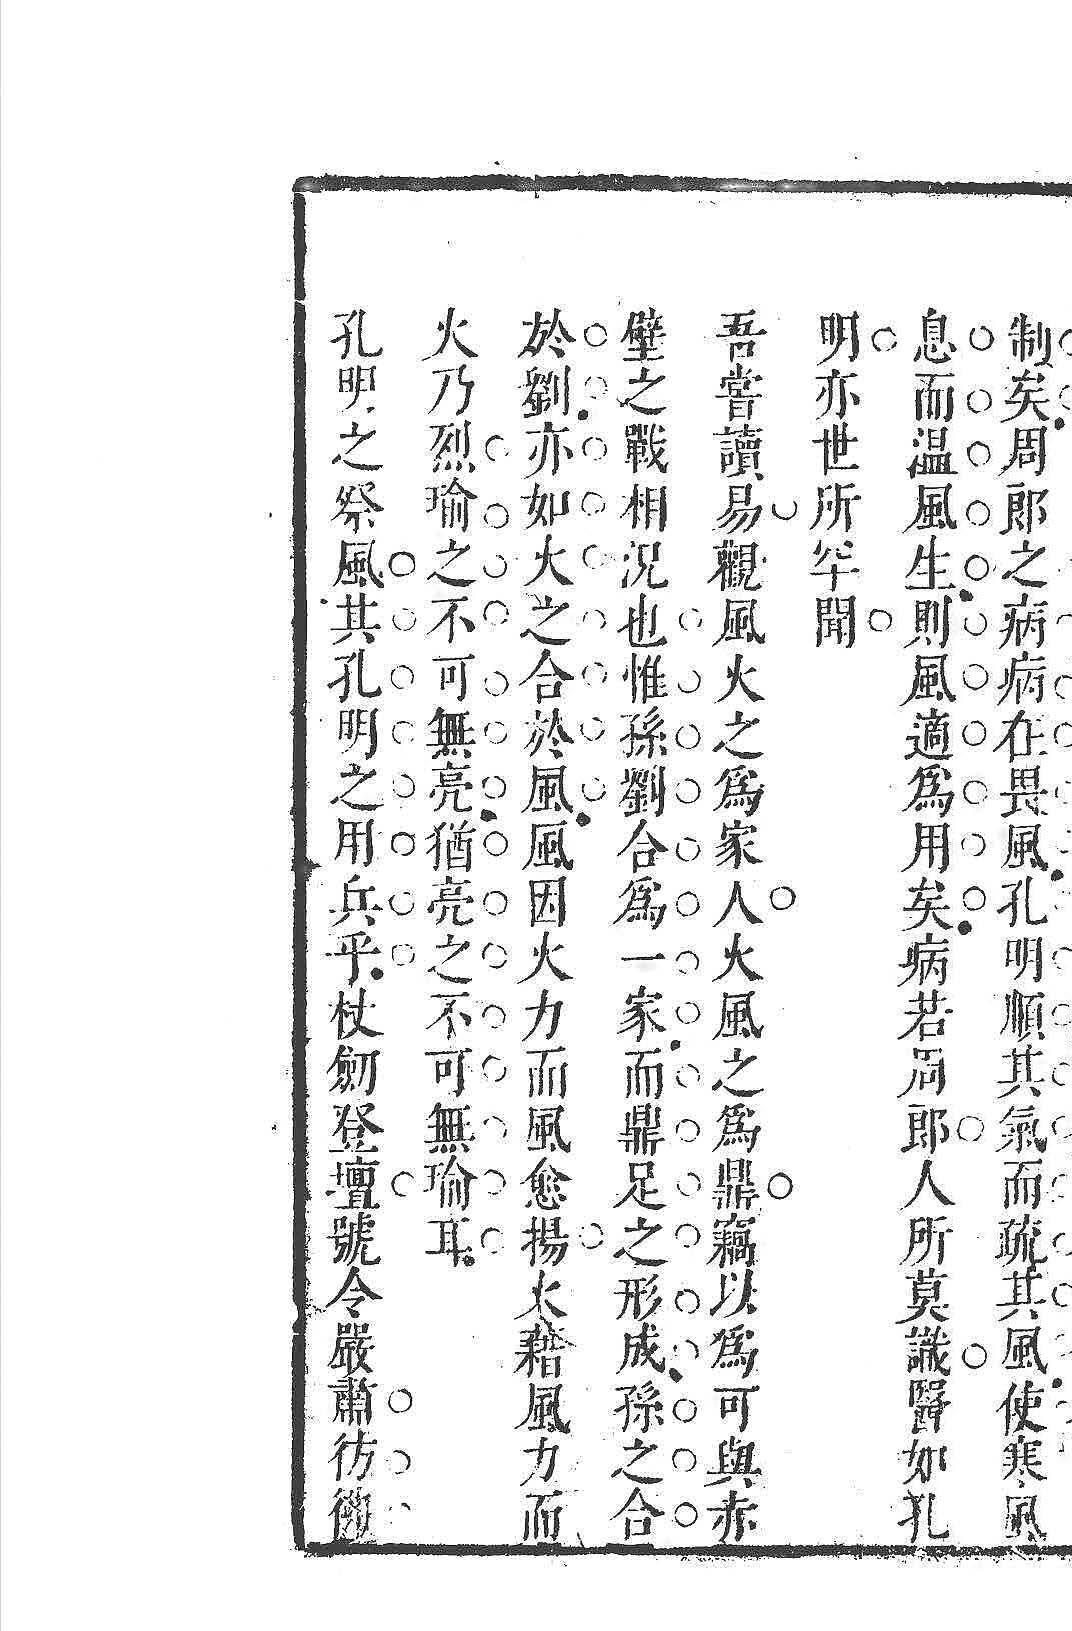 制矣周郎之病病在畏風孔明順其氣而疏其風使寒風
息而溫風生則風適爲用矣病若周郎人所莫識醫如孔
明亦世所罕聞
吾嘗讀易觀風火之爲家人火風之爲鼎竊以爲可與赤
壁之戰相况也惟孫劉合爲一家而鼎足之形成孫之合
於劉亦如火之合於風風因火力而風愈揚火藉風力而
火乃烈瑜之不可無亮猶亮之不可無瑜耳
孔明之祭風其孔明之用兵乎杖劒登壇號令嚴肅彷彿